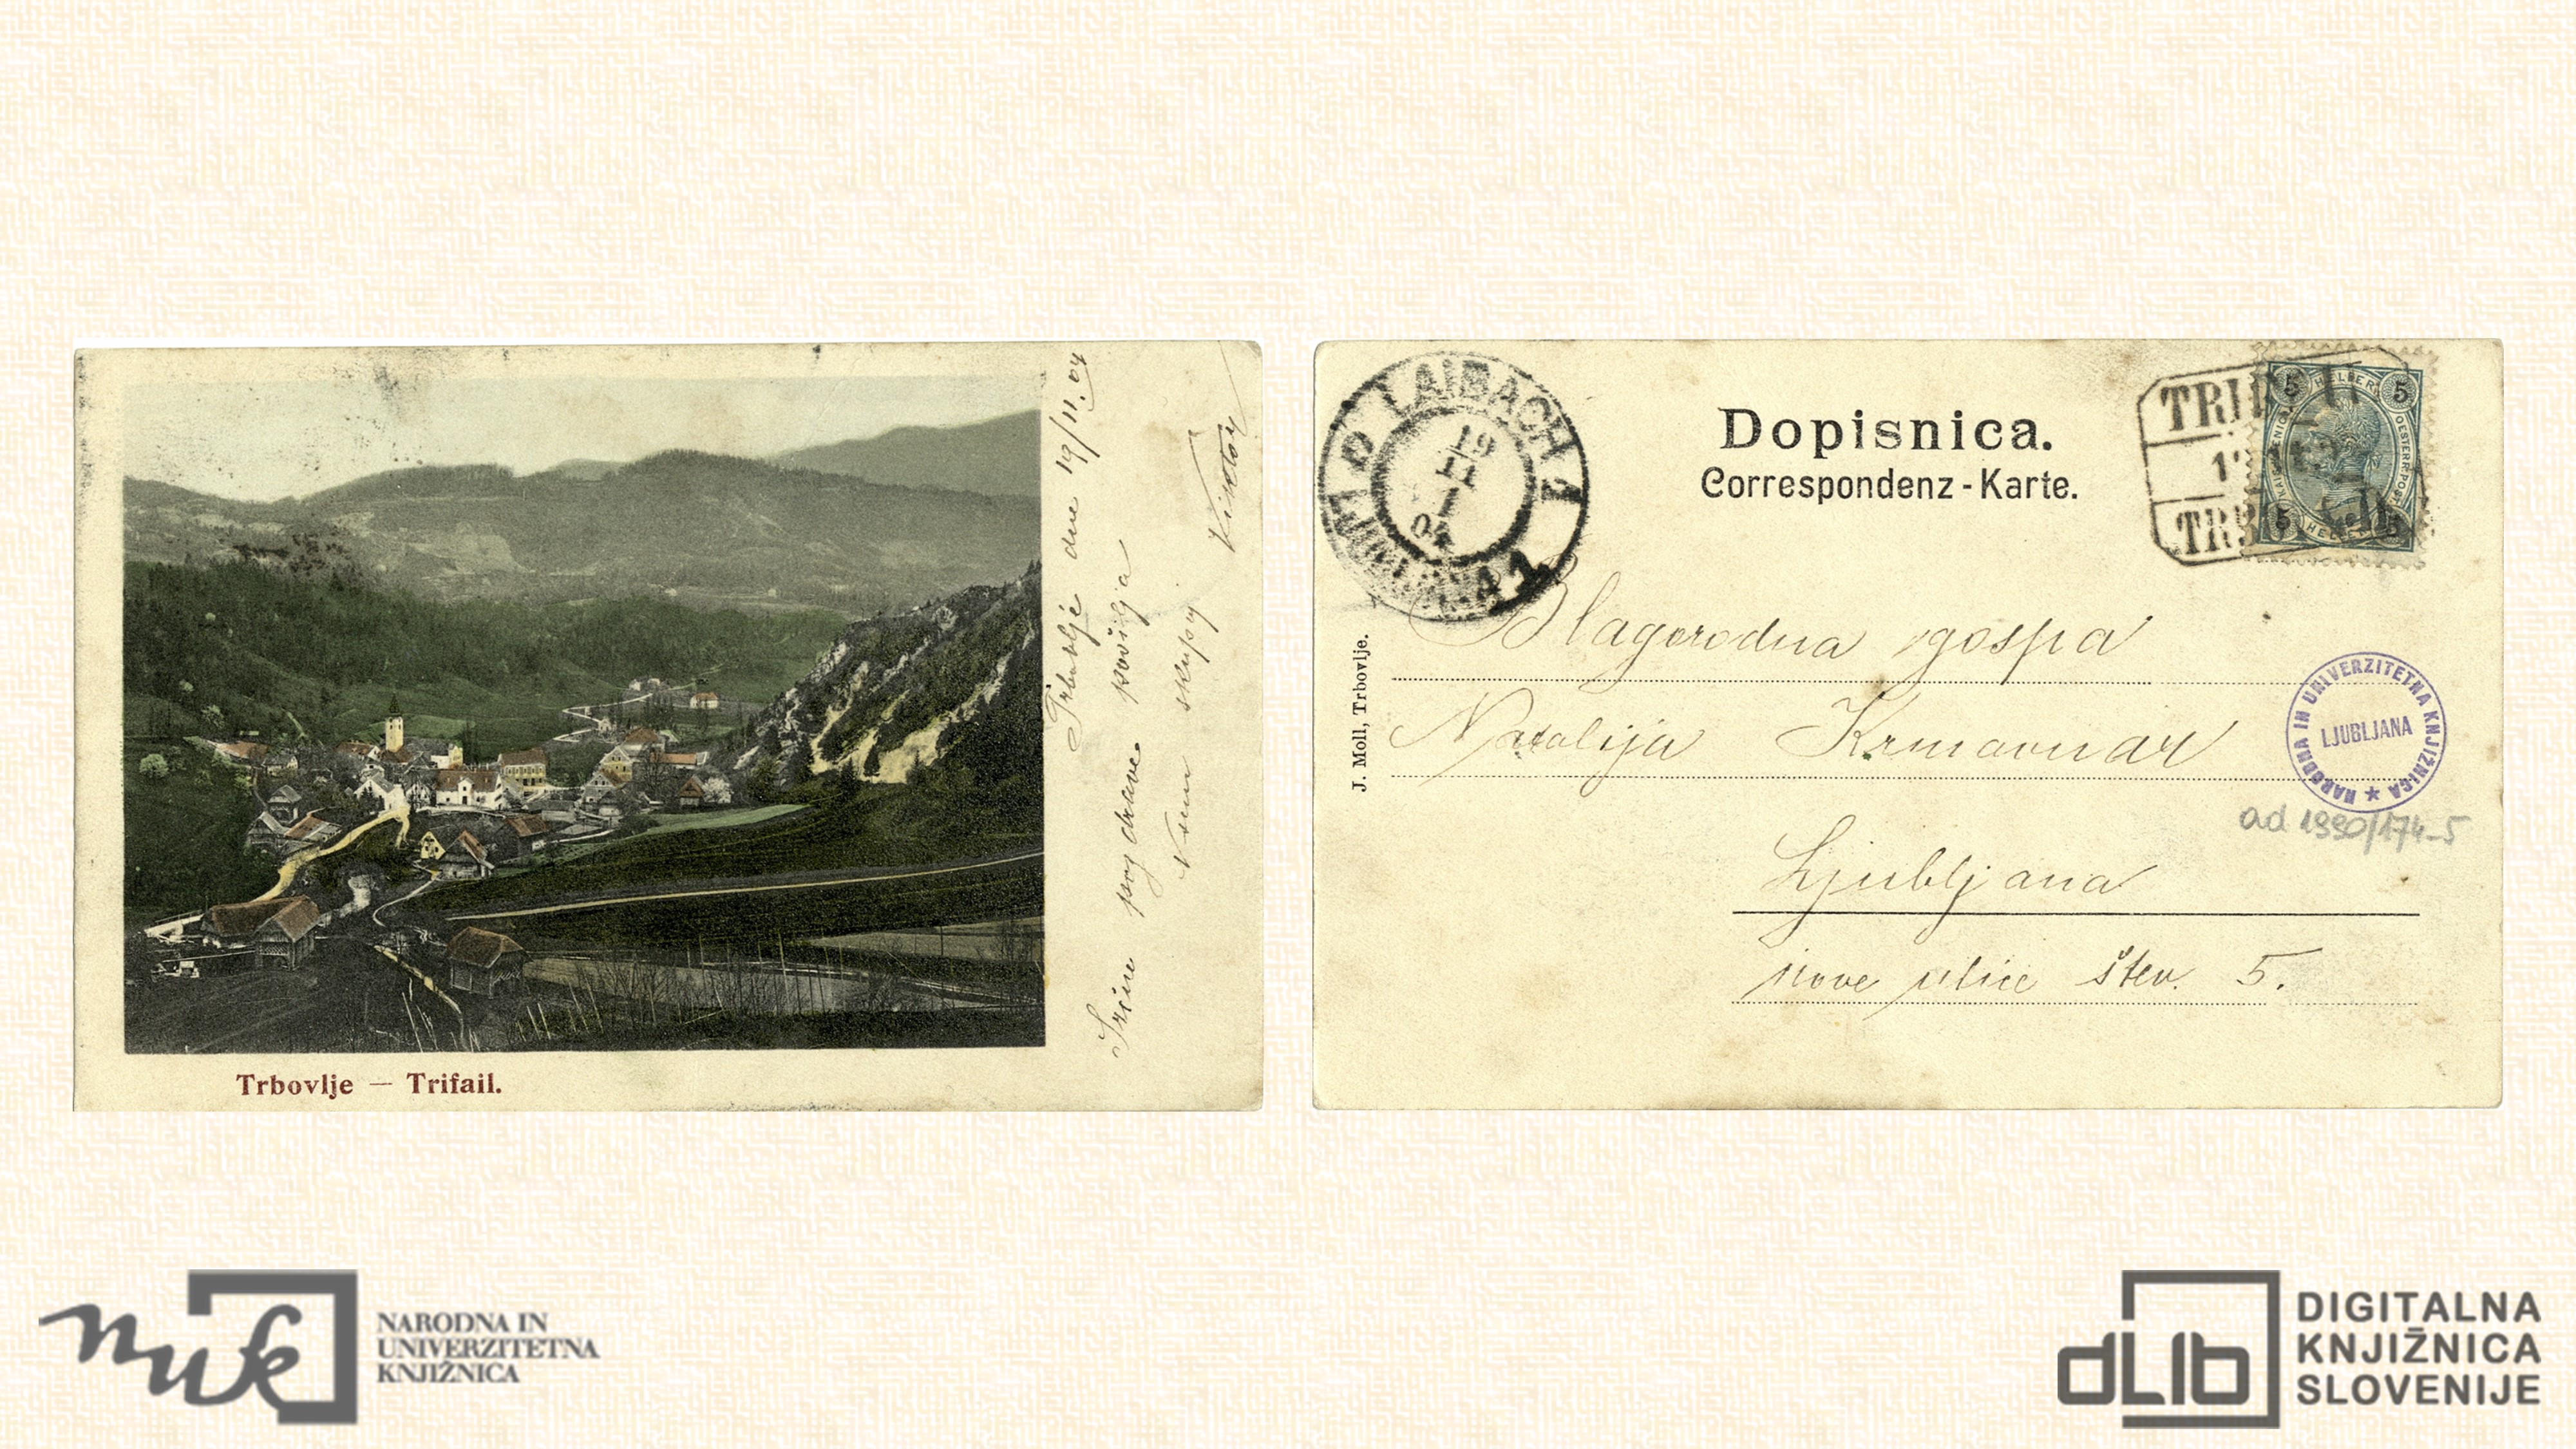 Trbovlje dne 19/11.04
Srčne pozdrave pošilja
Vsem skupaj
Viktor
Trbovlje — Trifail.
LAIBACH 1
19
II
04
1
Dopisnica.
Correspondenz-Karte.
TRIF
5 HELLER 5
TRBO
J. Moll, Trbovlje.
Blagorodna gospa
Natalija Krmavnar
Ljubljana
nove ulice štev. 5.
NARODNA IN UNIVERZITETNA KNJIŽNICA
LJUBLJANA
ad 1990/174-5
nuk
NARODNA IN
UNIVERZITETNA
KNJIŽNICA
dLib
DIGITALNA
KNJIŽNICA
SLOVENIJE